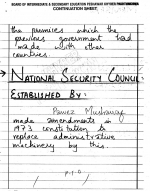 BOARD OF INTERMEDIATE & SECONDARY EDUCATION PESHAWAR
CONTINUATION SHEET
the promises which the
previous government had
made with other
countries.
NATIONAL SECURITY COUNCIL:
ESTABLISHED BY:
Pervez Musharraf
made amendments in
1973 constitution to
replace administrative
machinery by this.
P.T.O